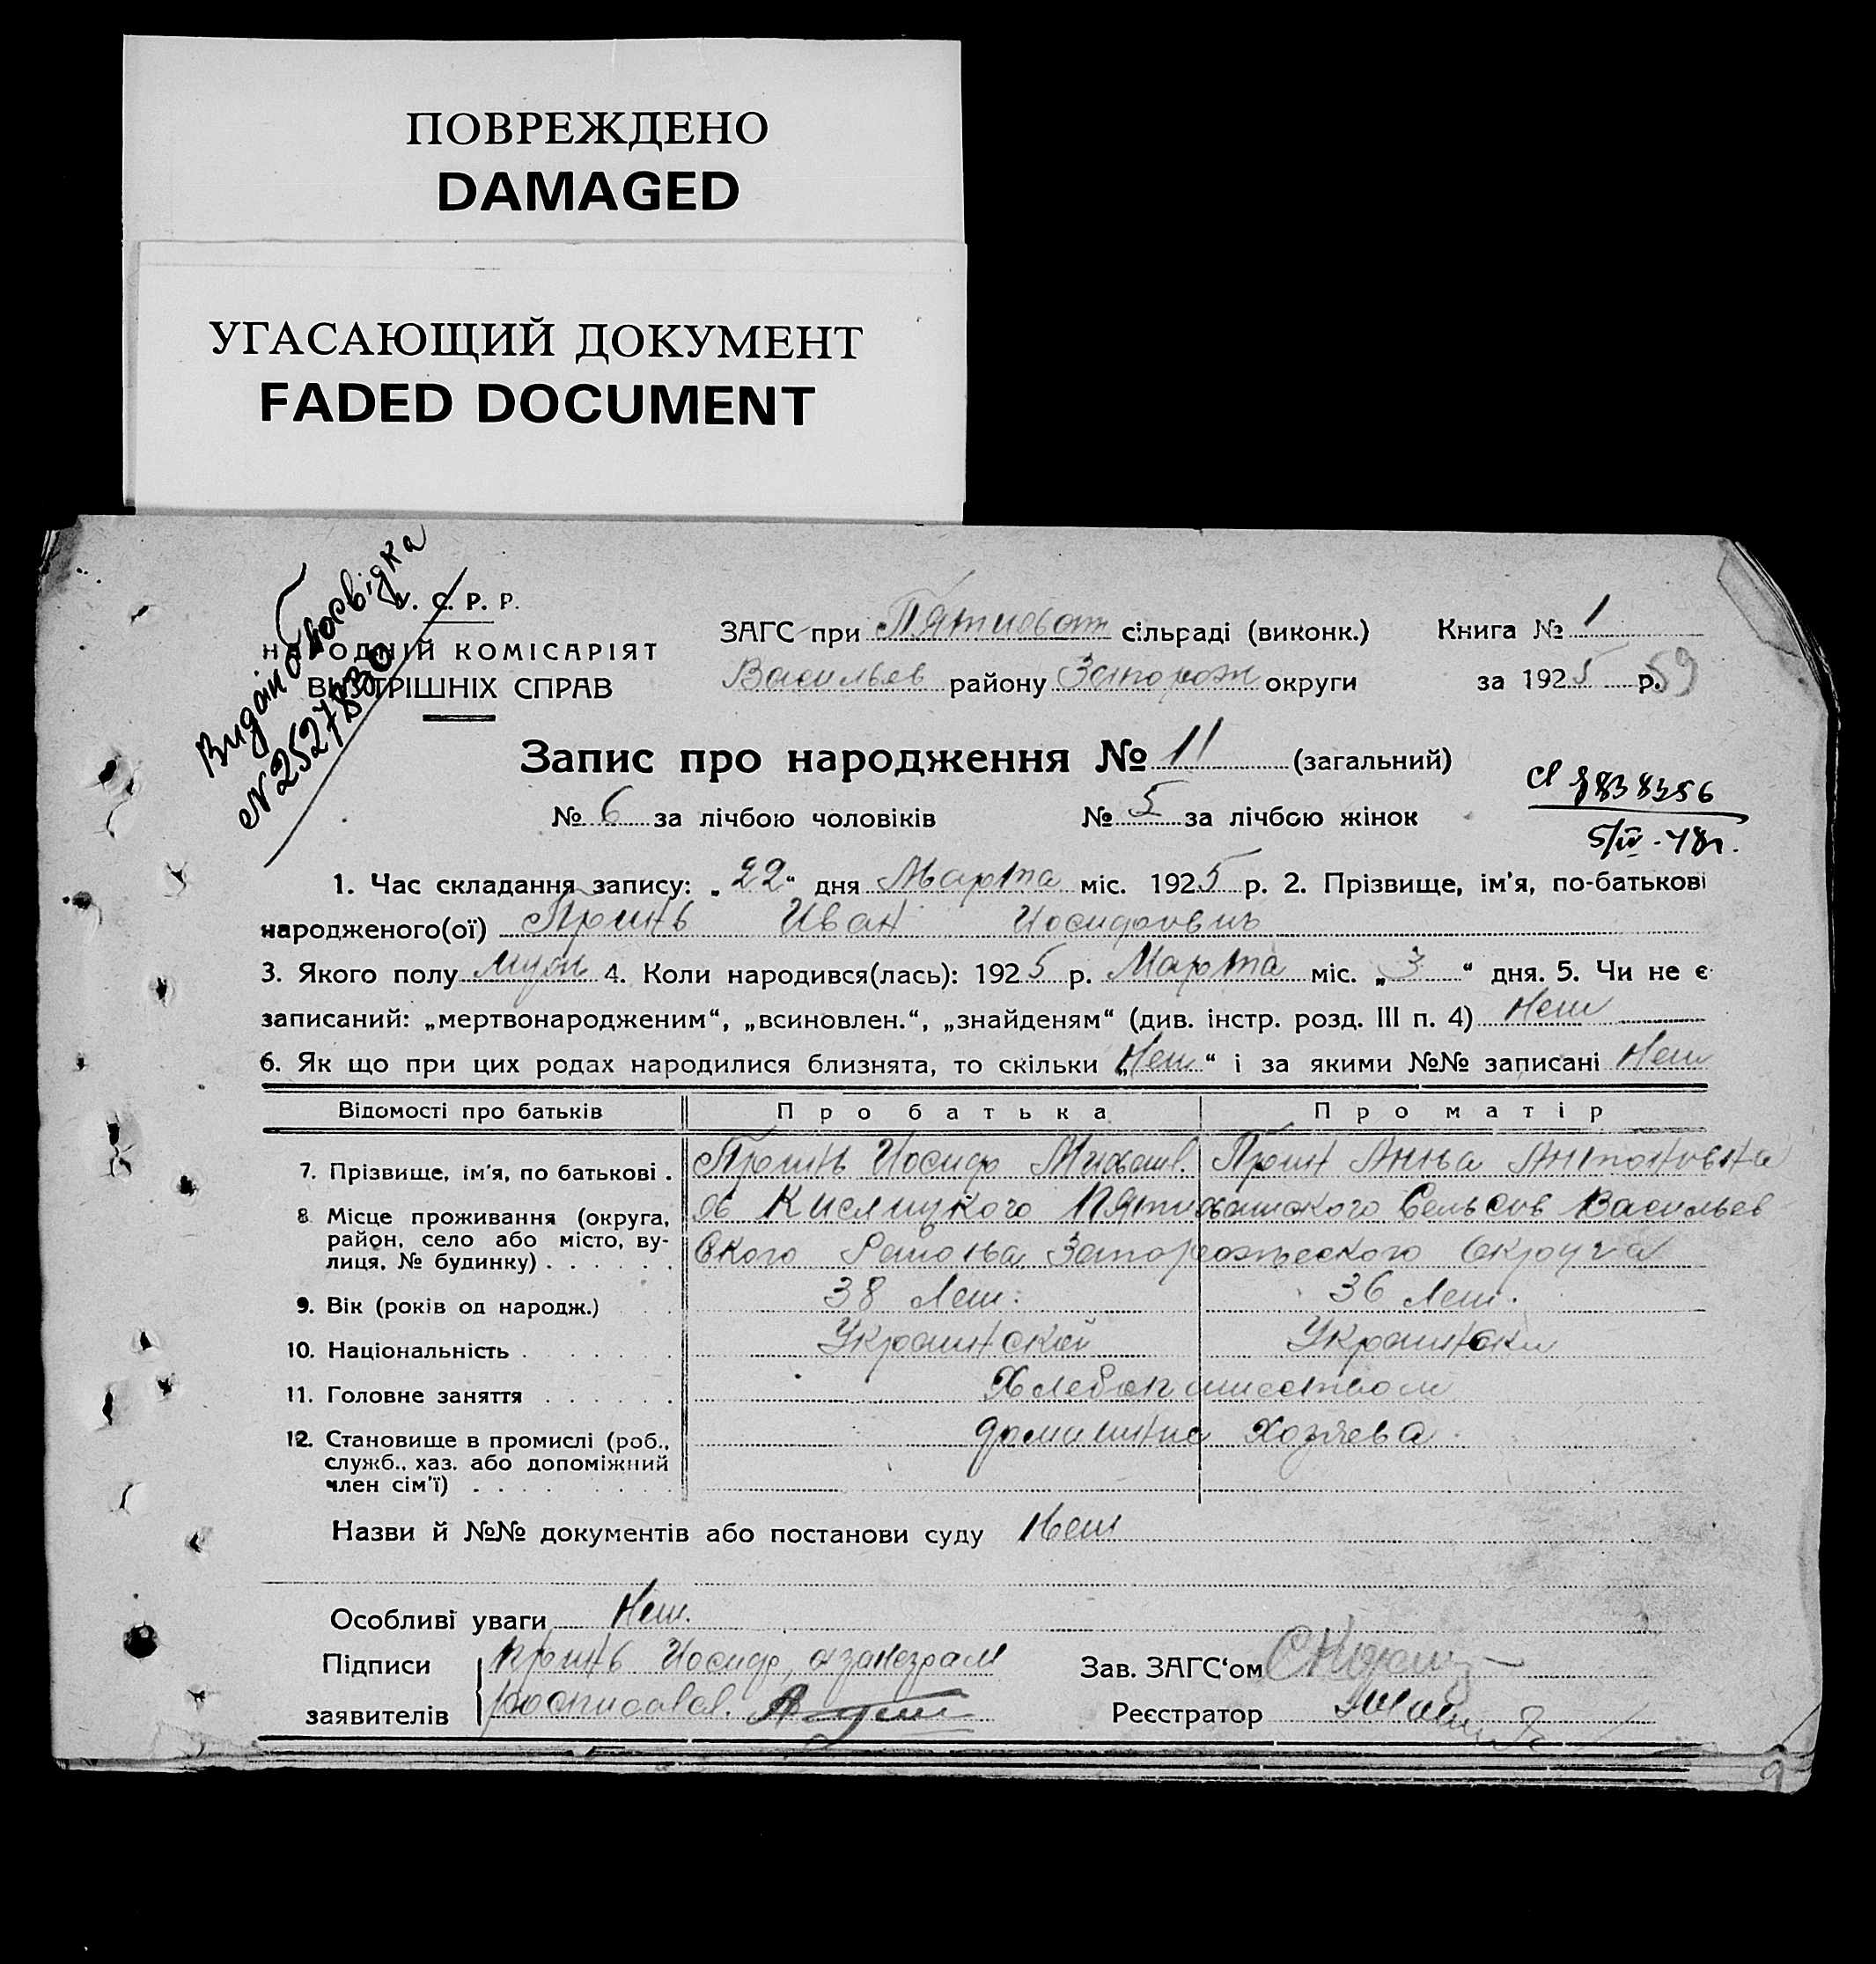 ПОВРЕЖДЕНО
DAMAGED
УГАСАЮЩИЙ ДОКУМЕНТ
FADED DOCUMENT
С. Р. Р.
НАРОДНІЙ КОМІСАРІЯТ
ВНУТРІШНІХ СПРАВ
Видано посвідка
№ 2527830
ЗАГС при Пятихат сільраді (виконк.) Книга № 1
Васильев району Запорож округи за 1925 р. 59
Запис про народження № 11 (загальний)
№ 6 за лічбою чоловіків № 5 за лічбою жінок
5/IV-48г.
1. Час складання запису: „22“ дня Марта міс. 1925 р. 2. Прізвище, ім'я, по-батькові
народженого(ої) Иван Иосифович
3. Якого полу муж 4. Коли народився(лась): 1925 р. Марта міс. „3“ дня. 5. Чи не є
записаний: „мертвонародженим“, „всиновлен.“, „знайденям“ (див. інстр. розд. III п. 4) Нет
6. Як що при цих родах народилися близнята, то скільки „Нет“ і за якими №№ записані Нет
Відомості про батьків Про батька Про матір
7. Прізвище, ім'я, по батькові . Иосиф Михаил. Анна Антоновна
8 Місце проживання (округа, Пятихатского Сельсов Васильев
район, село або місто, ву- ского Района Запорожского Округа
лиця, № будинку) . . . . . .
9. Вік (років од народж.) 38 Лет. 36 Лет.
10. Національність . Украинской Украински
11. Головне заняття . . . . . . Хлебопашеством
12. Становище в промислі (роб., домашние хозяева
служб., хаз. або допоміжний
член сім'ї) . . . .
Назви й №№ документів або постанови суду Нет
Особливі уваги Нет.
Підписи Иосиф, а за неграм
заявителів росписался.
Зав. ЗАГС‘ом
Реєстратор